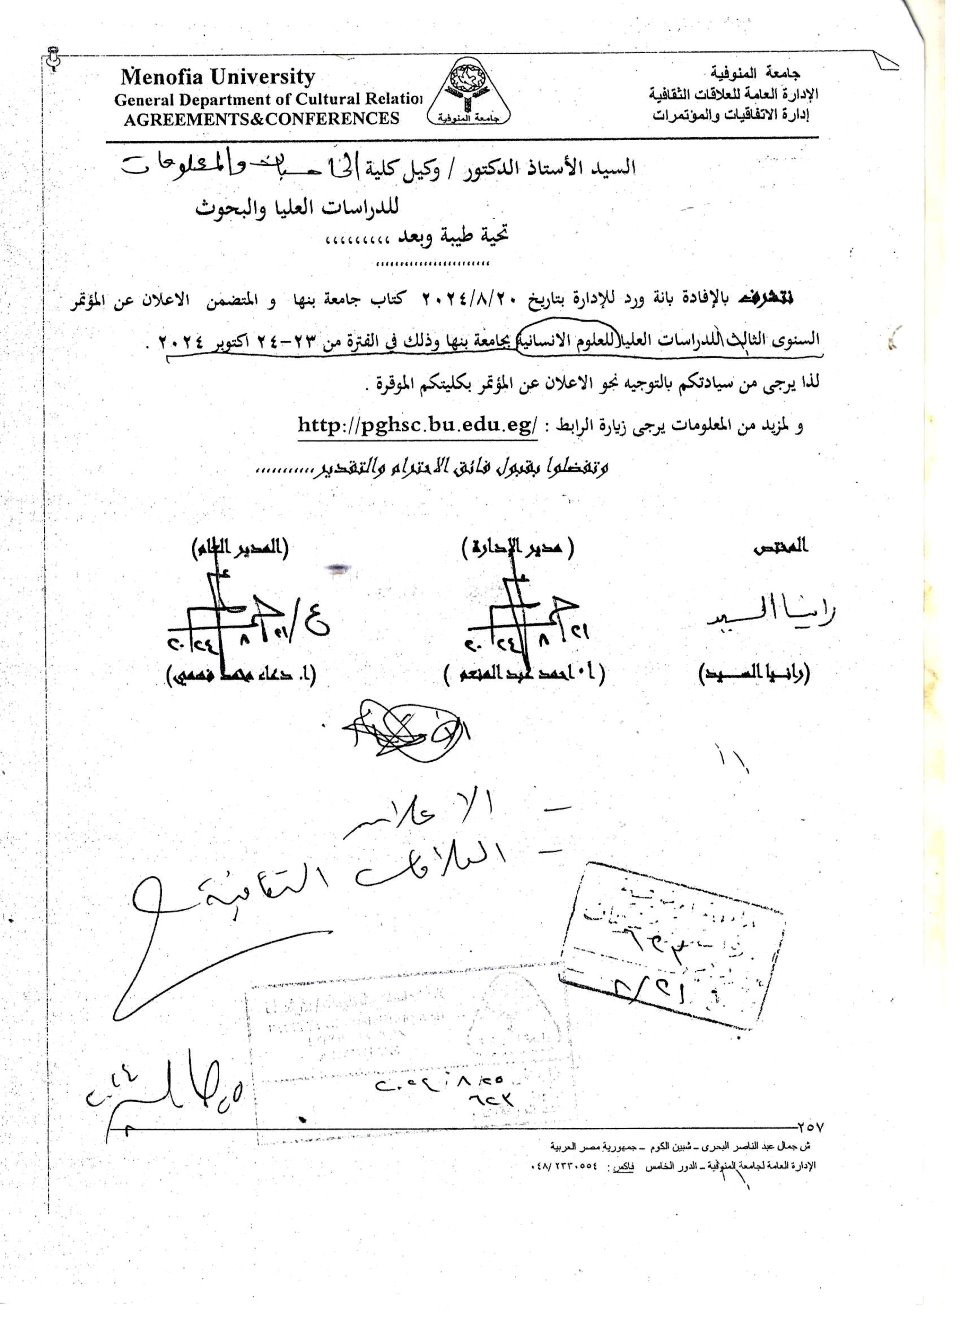 Menofia University
General Department of Cultural Relation
AGREEMENTS&CONFERENCES
جامعة المنوفية
جامعة المنوفية
الإدارة العامة للعلاقات الثقافية
إدارة الاتفاقيات والمؤتمرات
السيد الأستاذ الدكتور / وكيل كلية الحاسبات والمعلومات
للدراسات العليا والبحوث
تحية طيبة وبعد ,,,,,,,,,
نتشرف بالإفادة بانة ورد للإدارة بتاريخ ٢٠٢٤/٨/٢٠ كتاب جامعة بنها و المتضمن الاعلان عن المؤتمر
السنوى الثالث للدراسات العليا للعلوم الانسانية بجامعة بنها وذلك في الفترة من ٢٣-٢٤ اكتوبر ٢٠٢٤ .
لذا يرجى من سيادتكم بالتوجيه نحو الاعلان عن المؤتمر بكليتكم الموقرة .
و لمزيد من المعلومات يرجى زيارة الرابط : http://pghsc.bu.edu.eg/
وتفضلوا بقبول فائق الاحترام والتقدير,,,,,,,,,,,
المختص
( مدير الإدارة )
(المدير العام)
رانيا السيد
٢٠٢٤ ٨ ٢١
ع/ ٢٠٢٤ ٨ ٢١
(رانيا السيد)
( أ٠ احمد عبد المنعم )
(أ. دعاء محمد فهمي)
– الاعلام
– العلاقات الثقافية
٦٢٣
٨/٢١
٢٠٢٤.٨/٢٥
٦٢٣
٢٥٧
ش جمال عبد الناصر البحرى – شبين الكوم – جمهورية مصر العربية
الإدارة العامة لجامعة المنوفية – الدور الخامس فاكس : ٠٤٨/٢٢٣٠٥٥٤